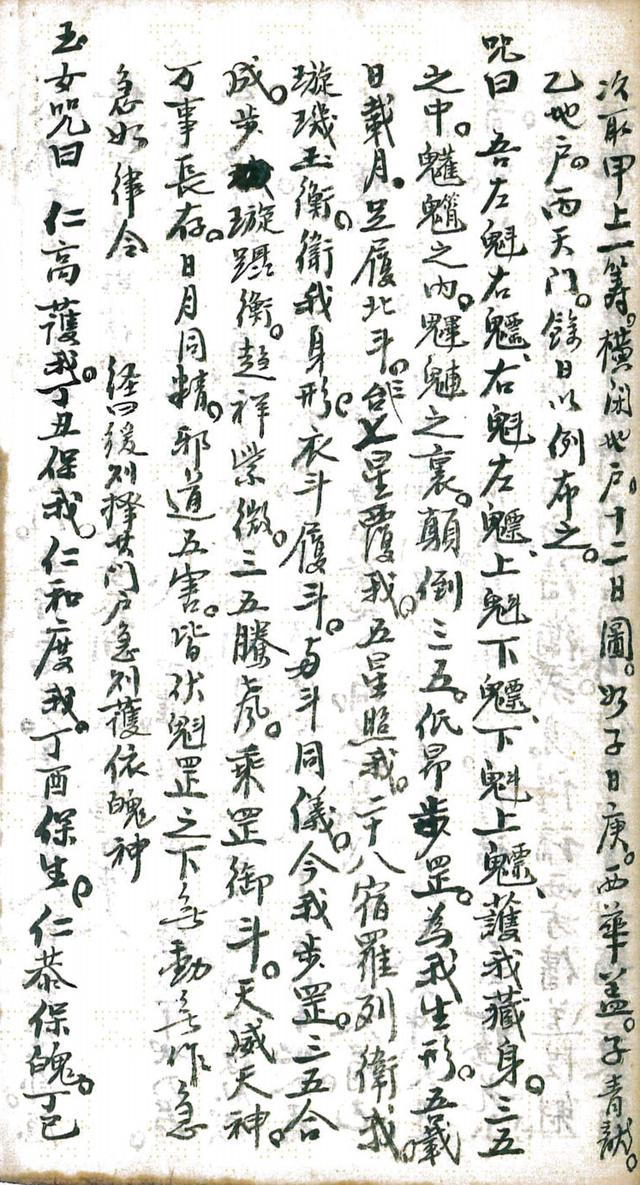 次取甲上一筹。橫闭地户。十二日圖。如子日庚。西華盖。子青龍。
乙地户。丙天门。餘日以例布之。
咒曰 吾左魁右魒、右魁左魒、上魁下魒、下魁上魒、護我藏身。三五
之中。魓之内。之裏。顛倒三五。低昂步罡。為我生形。五
日載月。足履北斗。七星覆我。五星照我。二十八宿羅列衛我。
璇璣玉衡。衛我身形。衣斗履斗。与斗同儀。今我步罡。三五合
成。步璇躡衡。超祥紫微。三五騰。乘罡御斗。天威天神。
万事長存。日月同精。邪道五害。皆伏魁罡之下無動無作急
急如律令 经曰緩则择其门户急则護依魄神
玉女咒曰 仁高護我。丁丑保我。仁和度我。丁酉保生。仁恭保魄。丁巳